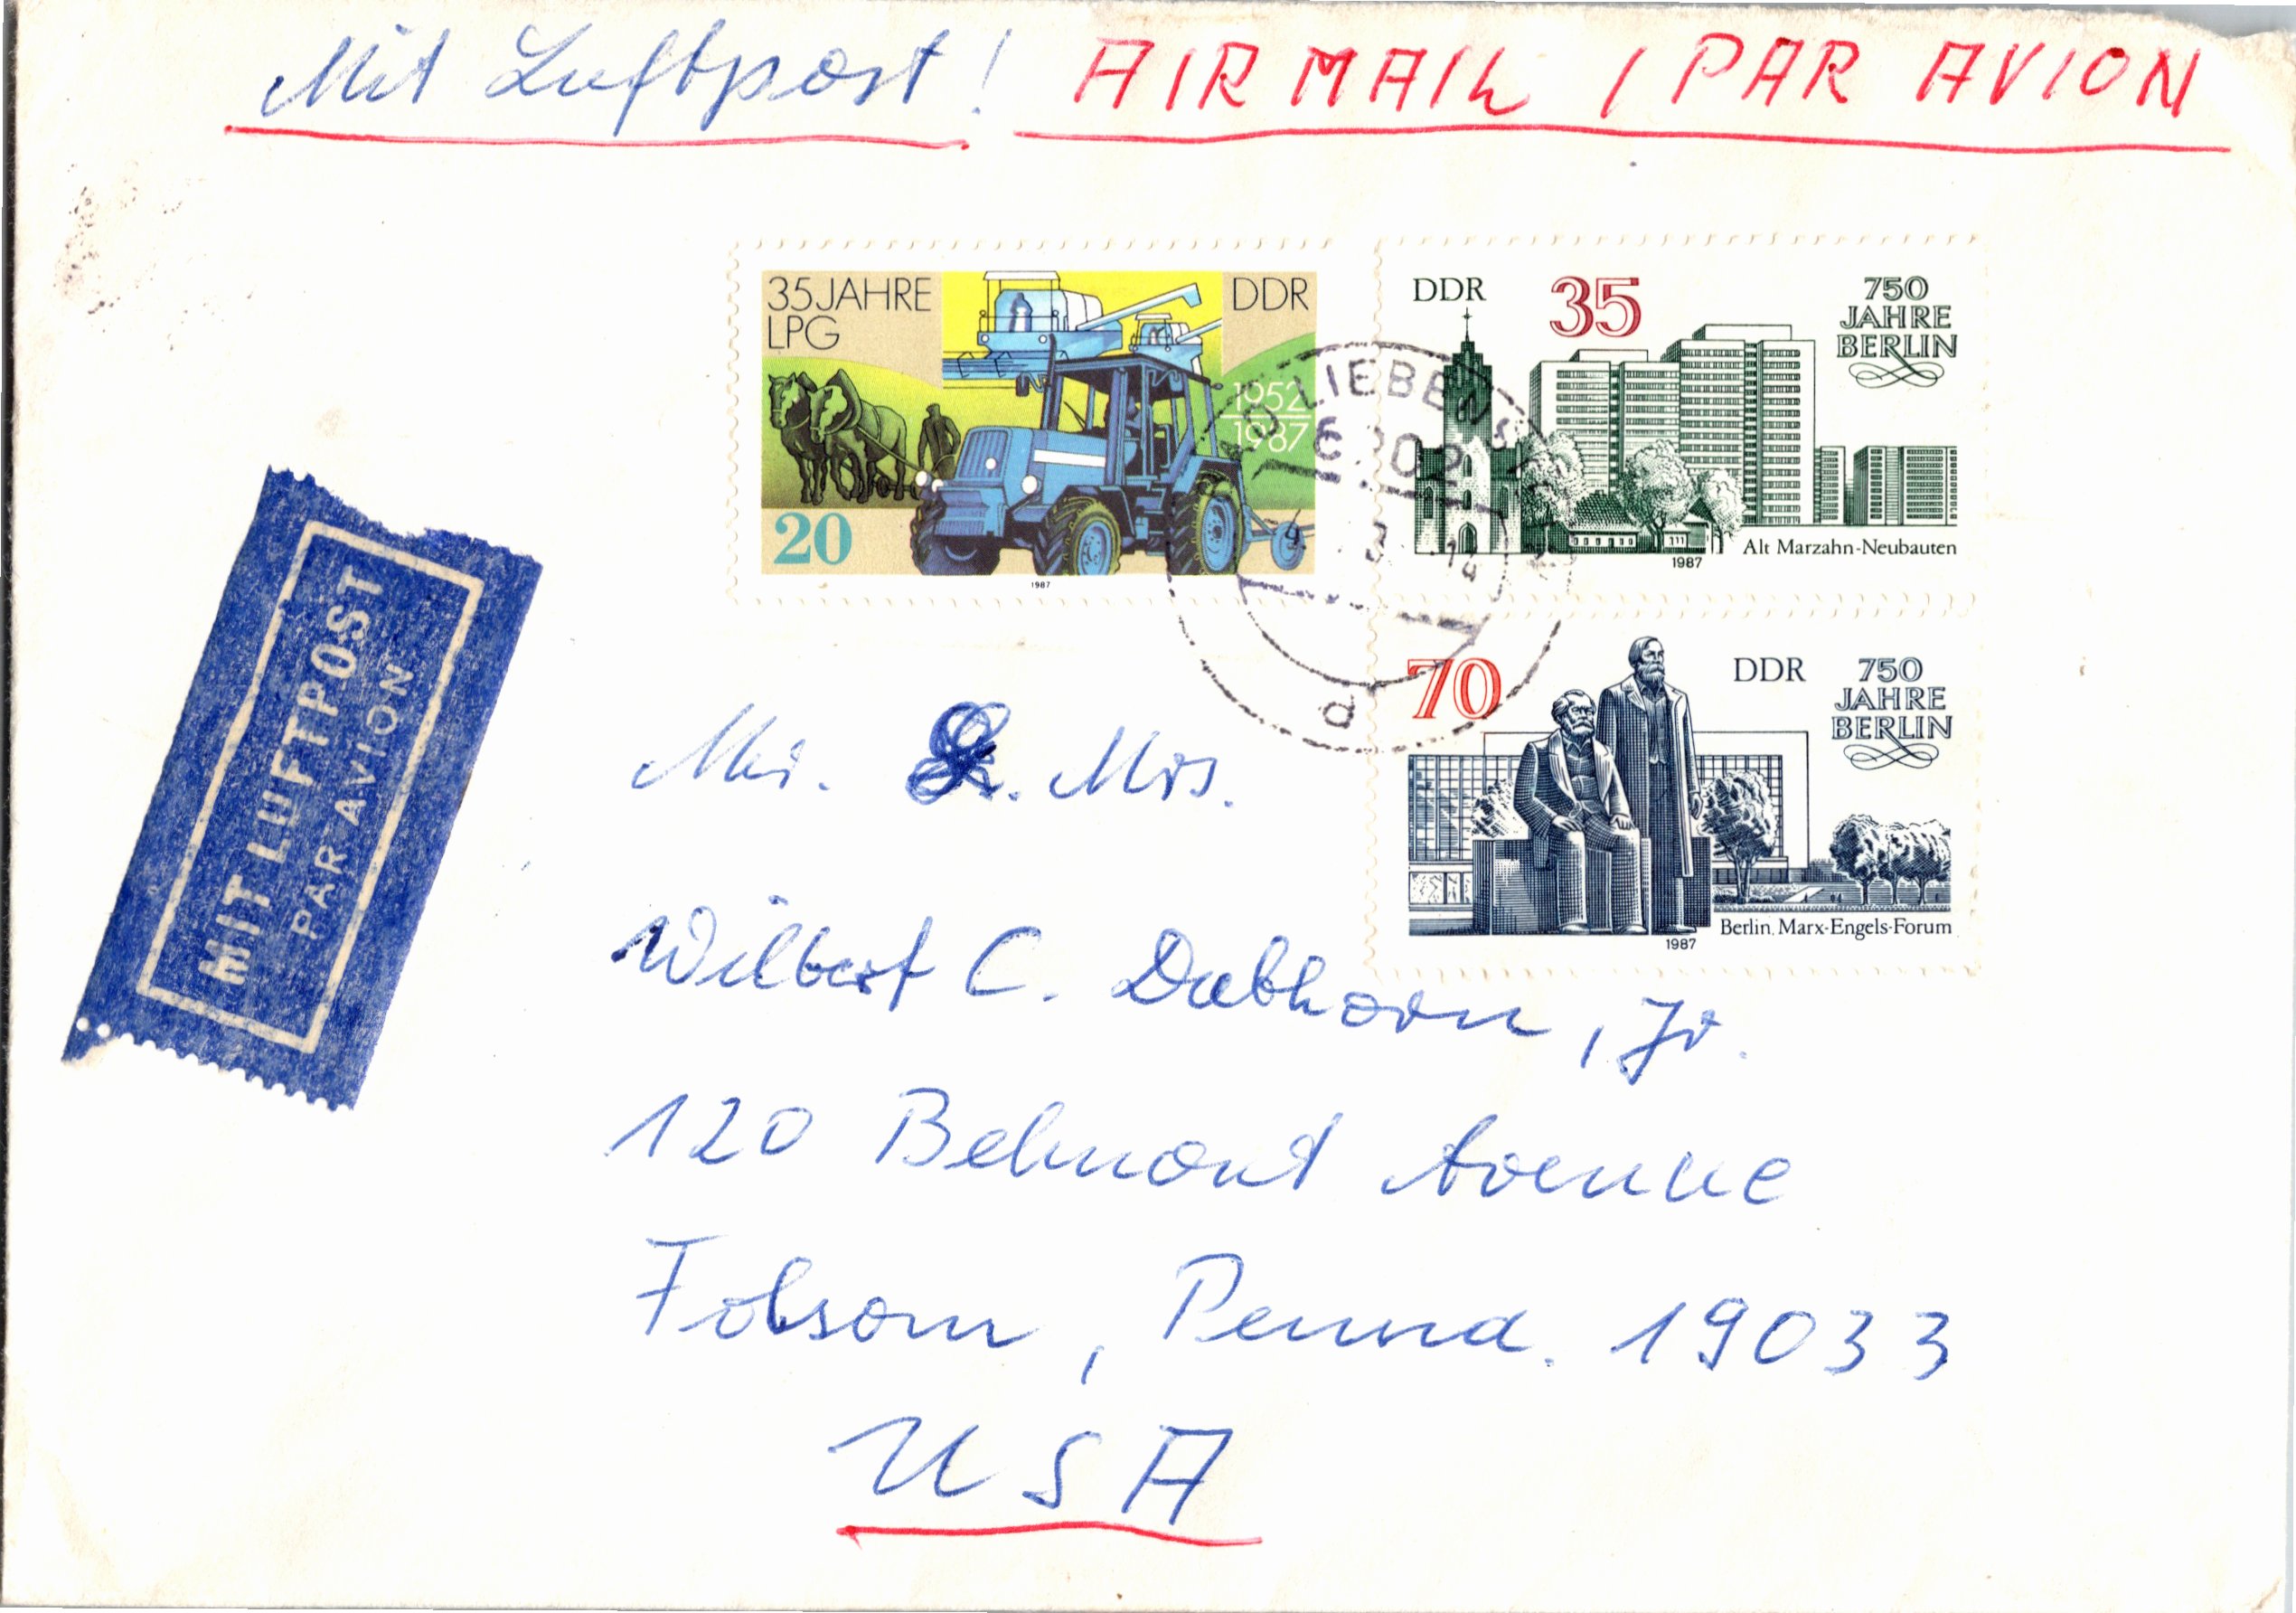 Mit Luftpost! AIR MAIL / PAR AVION
35 JAHRE
LPG
DDR
1952
1987
20
1987
DDR
35
750
JAHRE
BERLIN
Alt Marzahn-Neubauten
1987
70
DDR
750
JAHRE
BERLIN
Berlin, Marx-Engels-Forum
1987
LIEBENS
d
MIT LUFTPOST
PAR AVION
Mr. & Mrs.
Wilbert C. Dabhorn, Jr.
120 Belmont Avenue
Folsom, Penna. 19033
USA